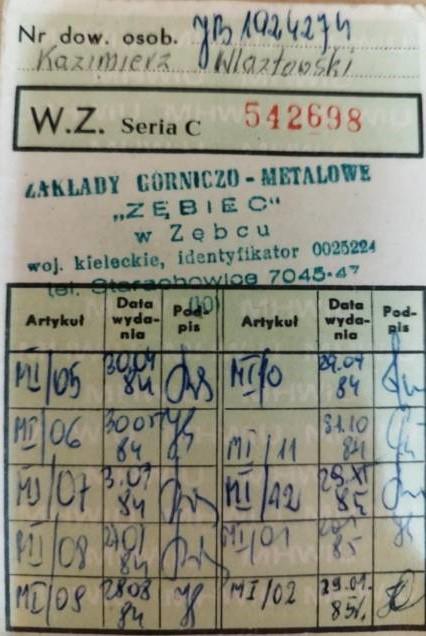 Nr dow. osob. JB 1924274
Kazimierz Wlazłowski
W.Z. Seria C 542698
ZAKŁADY GÓRNICZO-METALOWE
„ZĘBIEC"
w Zębcu
woj. kieleckie, identyfikator 0025224
tel. Starachowice 7045-47
Artykuł Data wyda- nia Pod- pis Artykuł Data wyda- nia Pod- pis
MI/05 30.04 84 MI/0 29.04 84
MI/06 3005 84 MI/11 31.10 84
MI/07 3.07 84 MI/12 29.XI 84
MI/08 84 MI/01 85
MI/09 2808 84 MI/02 29.01. 85